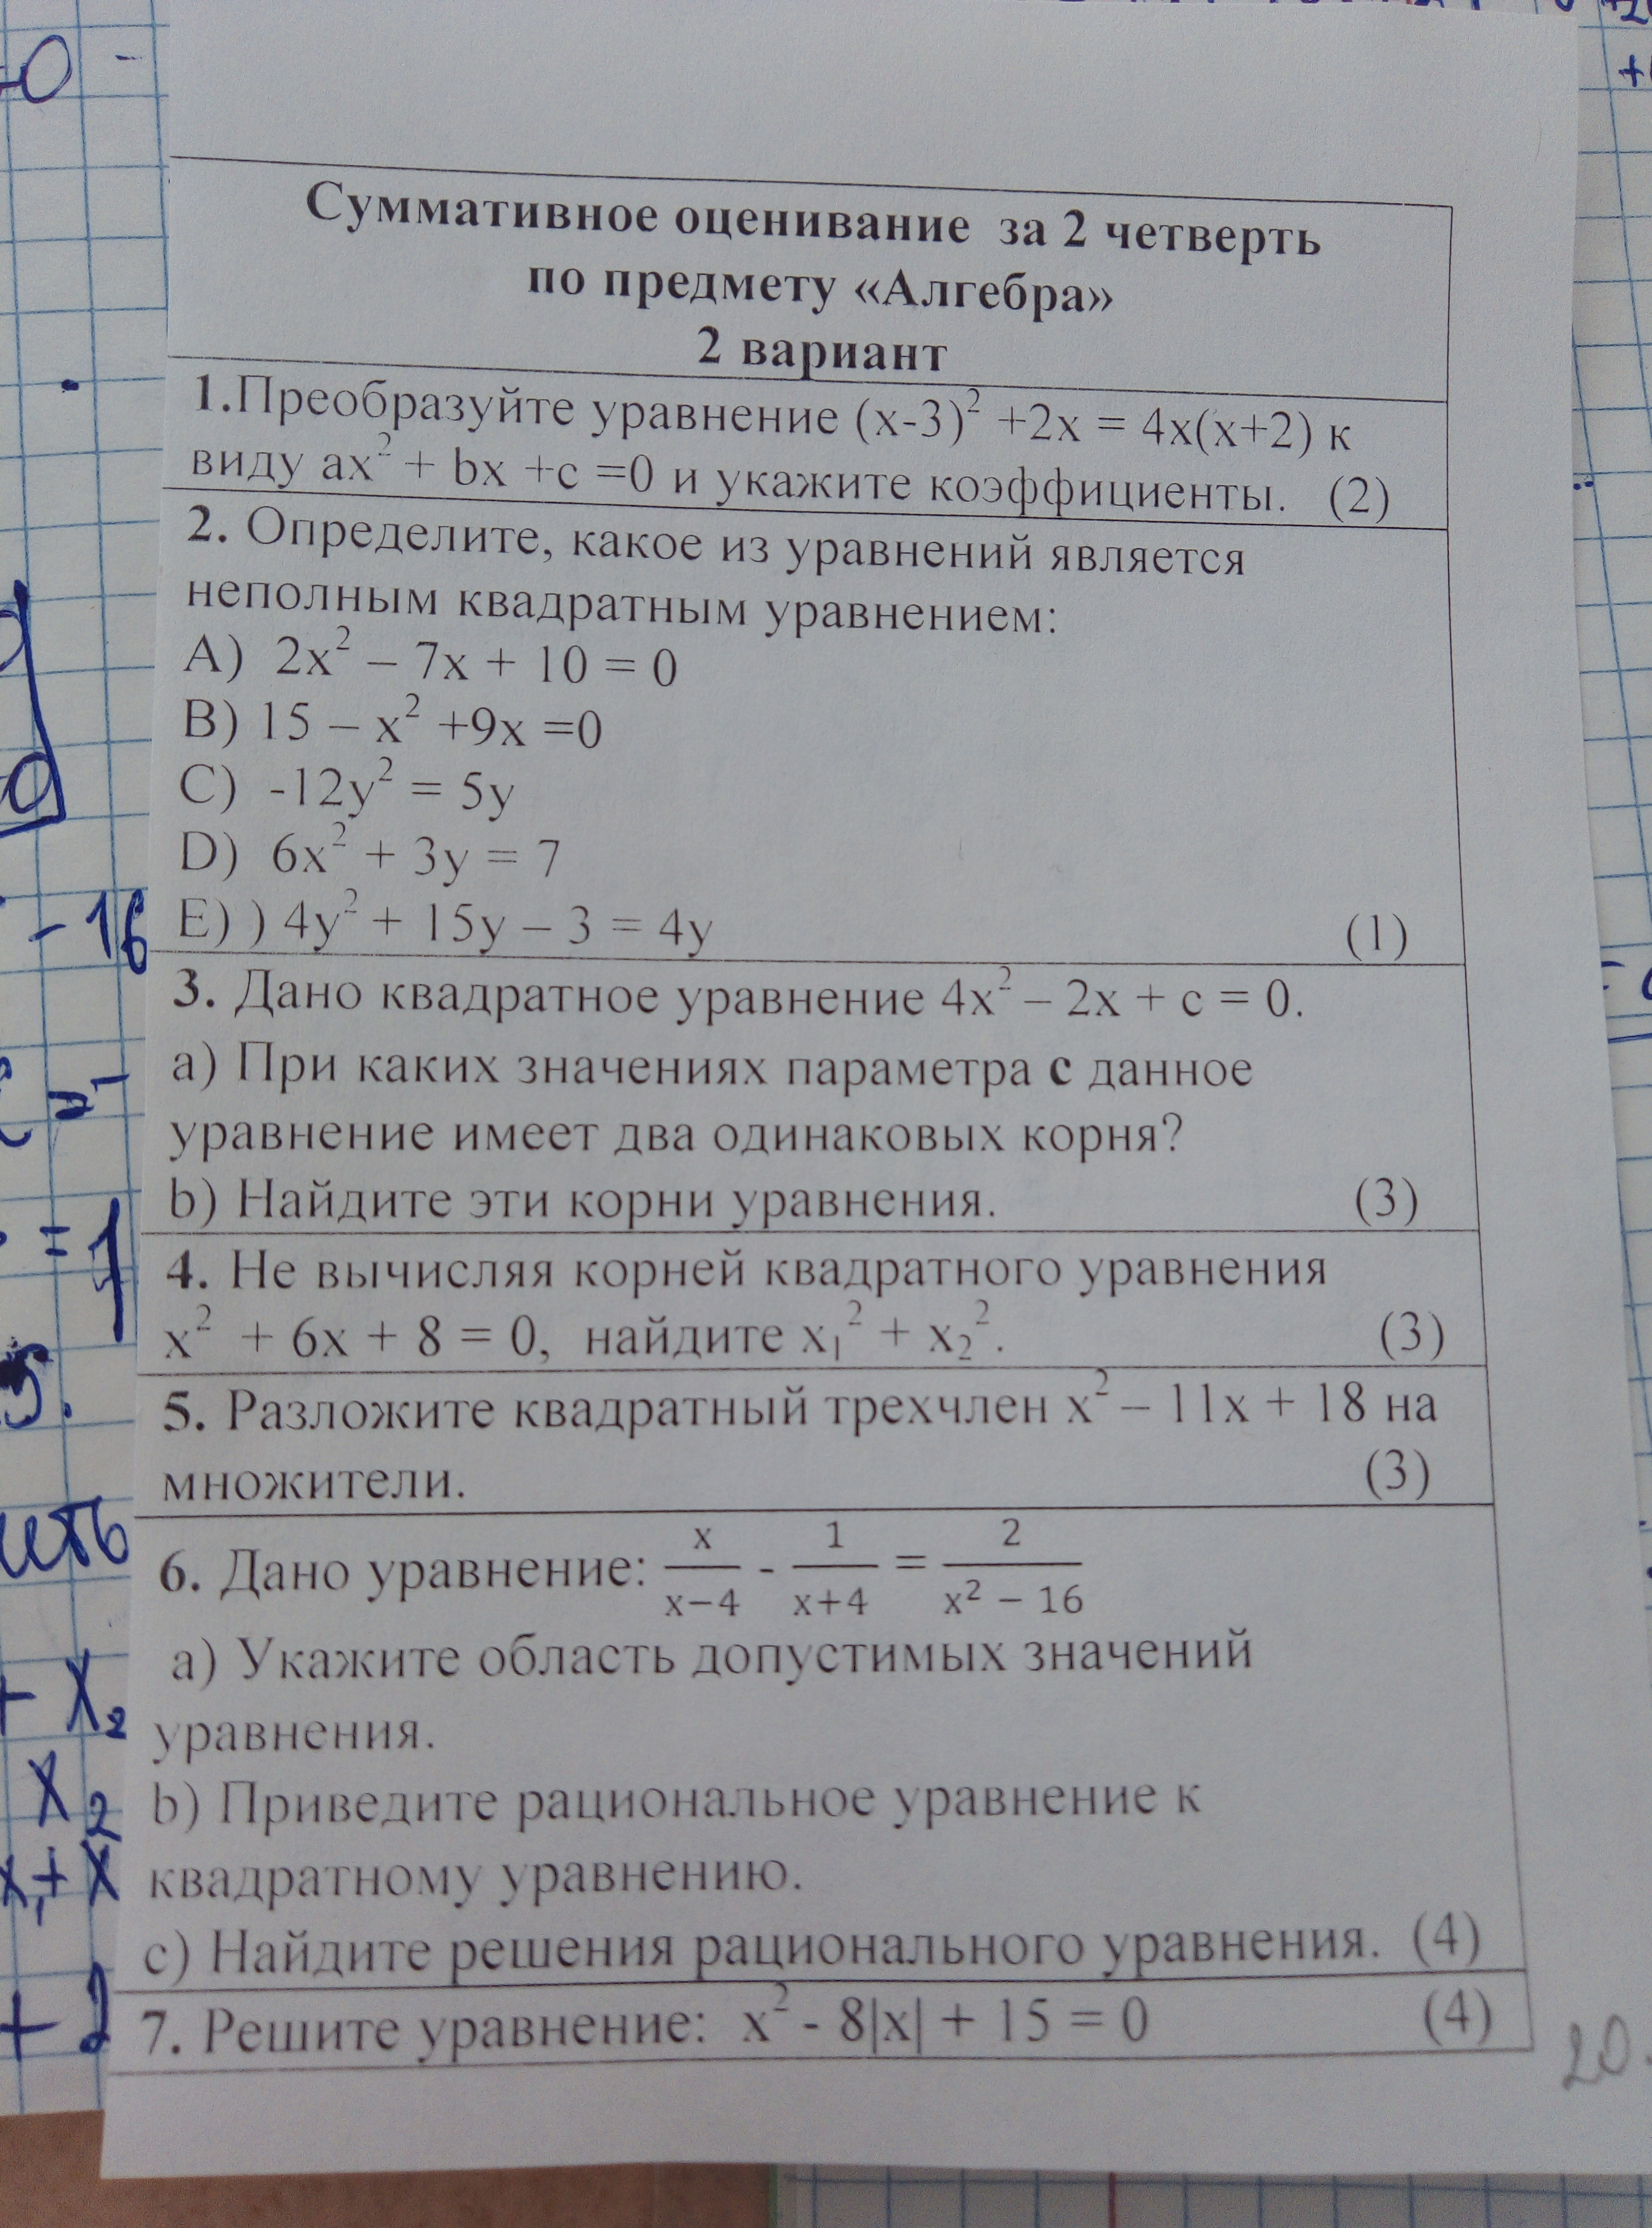 Суммативное оценивание за 2 четверть
по предмету «Алгебра»
2 вариант
1.Преобразуйте уравнение (x-3)² +2x = 4x(x+2) к
виду ax² + bx +c =0 и укажите коэффициенты. (2)
2. Определите, какое из уравнений является
неполным квадратным уравнением:
A) 2x² – 7x + 10 = 0
B) 15 – x² +9x =0
C) -12y² = 5y
D) 6x² + 3y = 7
E) ) 4y² + 15y – 3 = 4y (1)
3. Дано квадратное уравнение 4x² – 2x + c = 0.
a) При каких значениях параметра c данное
уравнение имеет два одинаковых корня?
b) Найдите эти корни уравнения. (3)
4. Не вычисляя корней квадратного уравнения
x² + 6x + 8 = 0, найдите x₁² + x₂². (3)
5. Разложите квадратный трехчлен x² – 11x + 18 на
множители. (3)
6. Дано уравнение: x/(x–4) - 1/(x+4) = 2/(x² – 16)
a) Укажите область допустимых значений
уравнения.
b) Приведите рациональное уравнение к
квадратному уравнению.
c) Найдите решения рационального уравнения. (4)
7. Решите уравнение: x² - 8|x| + 15 = 0 (4)
20.
- 16
= 1
5.
x₂
x₂
x₁ + x
+ 2